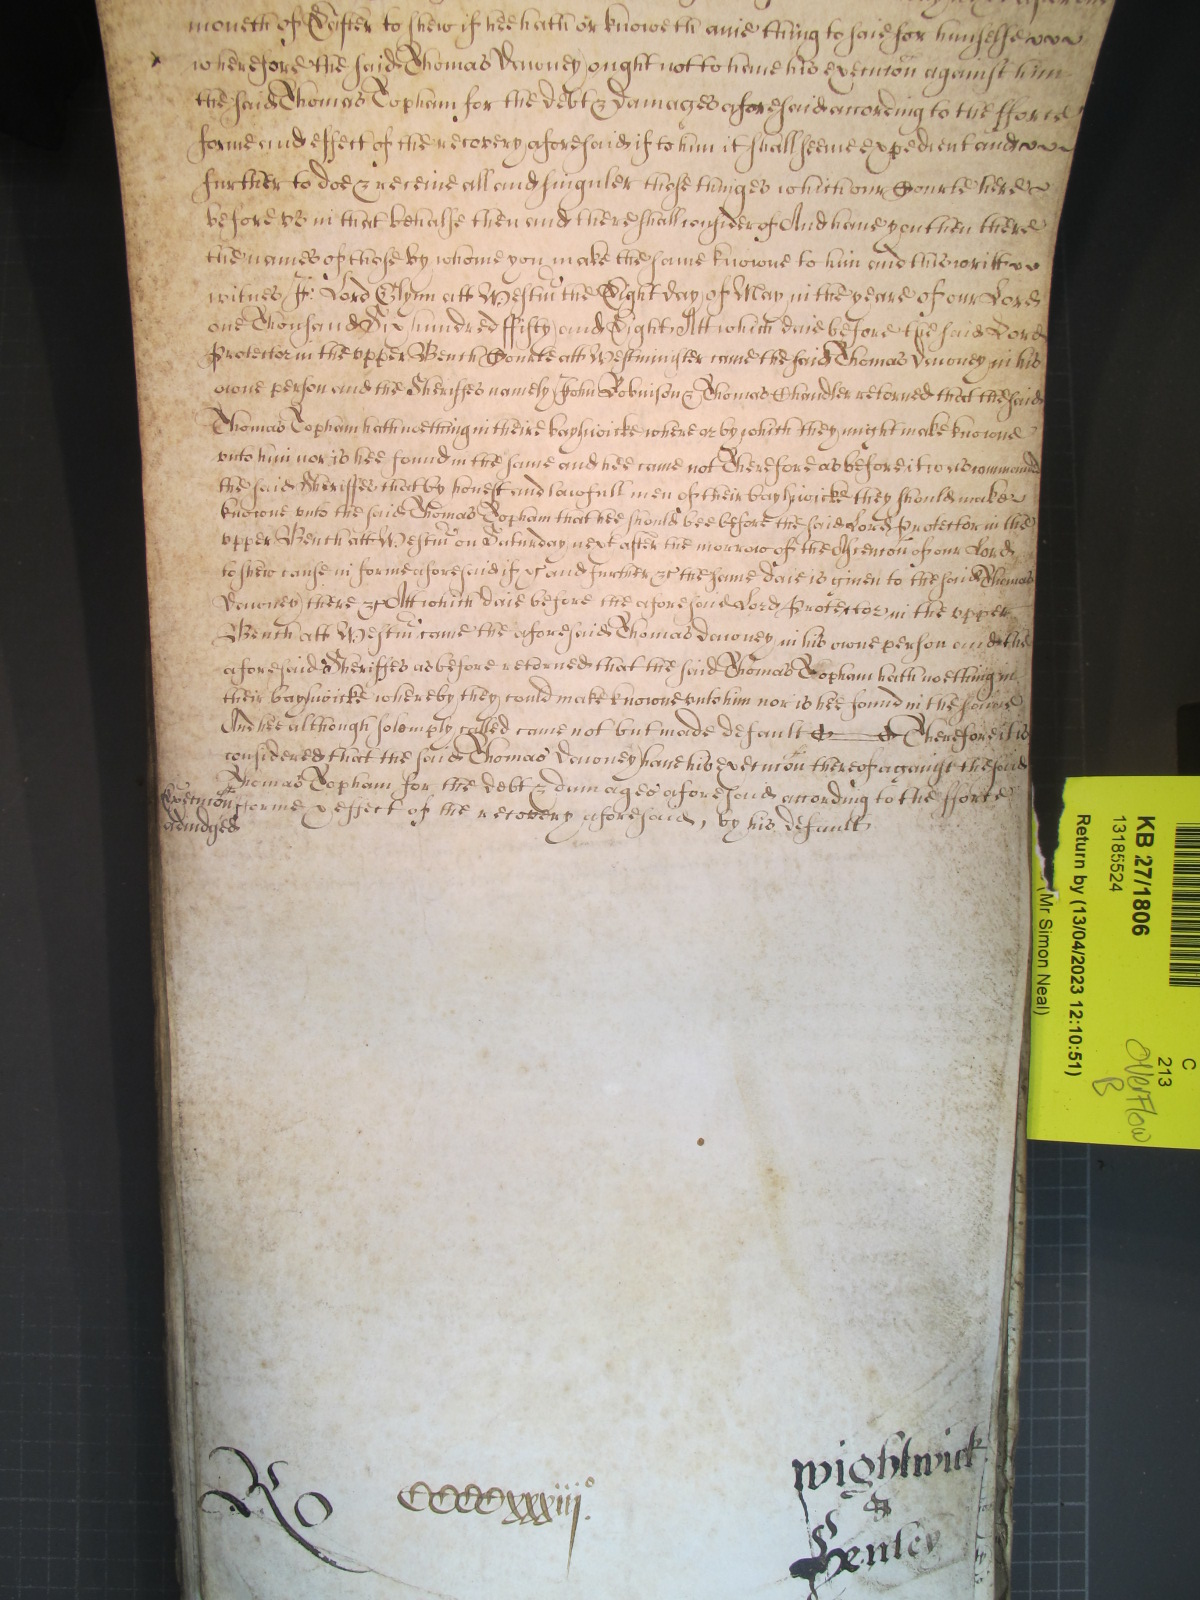 moneth of Easter to shew if hee hath or knoweth anie thing to saie for himselfe
wherefore the said Thomas Dawney ought not to haue his execucion against him
the said Thomas Topham for the debt & damages aforesaid according to the fforce
forme and effect of the recovery aforesaid if to him it shall seeme expedient and
further to doe & receiue all and singuler those thinges which our Courte here
before vs in that behalfe then and there shall consider of And haue you then there
the names of those by whome you make the same knowne to him and this writt
witnes Jo: Lord Glynn att Westm the Eight day of May in the yeare of our Lord
one Thousand Six hundred ffifty and Eight Att which daie before the said Lord
Protector in the vpper Bench Courte att Westminster came the said Thomas Dawney in his
owne person and the Sheriffes namely John Robinson & Thomas Chandler retorned that the said
Thomas Topham hath noething in theire bayliwicke where or by which they might make knowne
vnto him nor is hee found in the same and hee came not Therefore as before it was commannd
the said Sheriffes that by honest and lawfull men of their bayliwicke they should make
knowne vnto the said Thomas Topham that hee should bee before the said Lord Protector in the
vpper Bench att Westm on Saturday next after the morrow of the Ascencion of our Lord
to shew cause in forme aforesaid if &c and further &c the same daie is giuen to the said Thomas
Dawney there &c Att which daie before the aforesaid Lord Protector in the vpper
Bench att Westm came the aforesaid Thomas Dawney in his owne person and the
aforesaid Sheriffes as before retorned that the said Thomas Topham hath noething in
their bayliwicke whereby they could make knowne vnto him nor is hee found in the same
And hee although solemply called came not but made default Therefore it is
considered that the said Thomas Dawney haue his execucion thereof against the said
Thomas Topham for the debt & damages aforesaid according to the fforce
Execucion forme & effect of the recovery aforesaid, by his default
adiudged
Ro CCCCxxxiiij.o
wightwick
&
Henley
KB 27/1806
13185524
Return by (13/04/2023 12:10:51)
(Mr Simon Neal)
C
213
Overflow
B